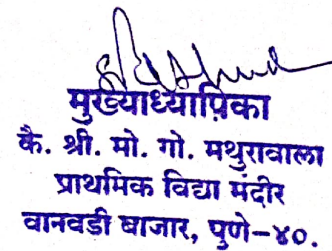 मुख्याध्यापिका
कै. श्री. मो. गो. मथुरावाला
प्राथमिक विद्या मंदीर
वानवडी बाजार, पुणे-४०.